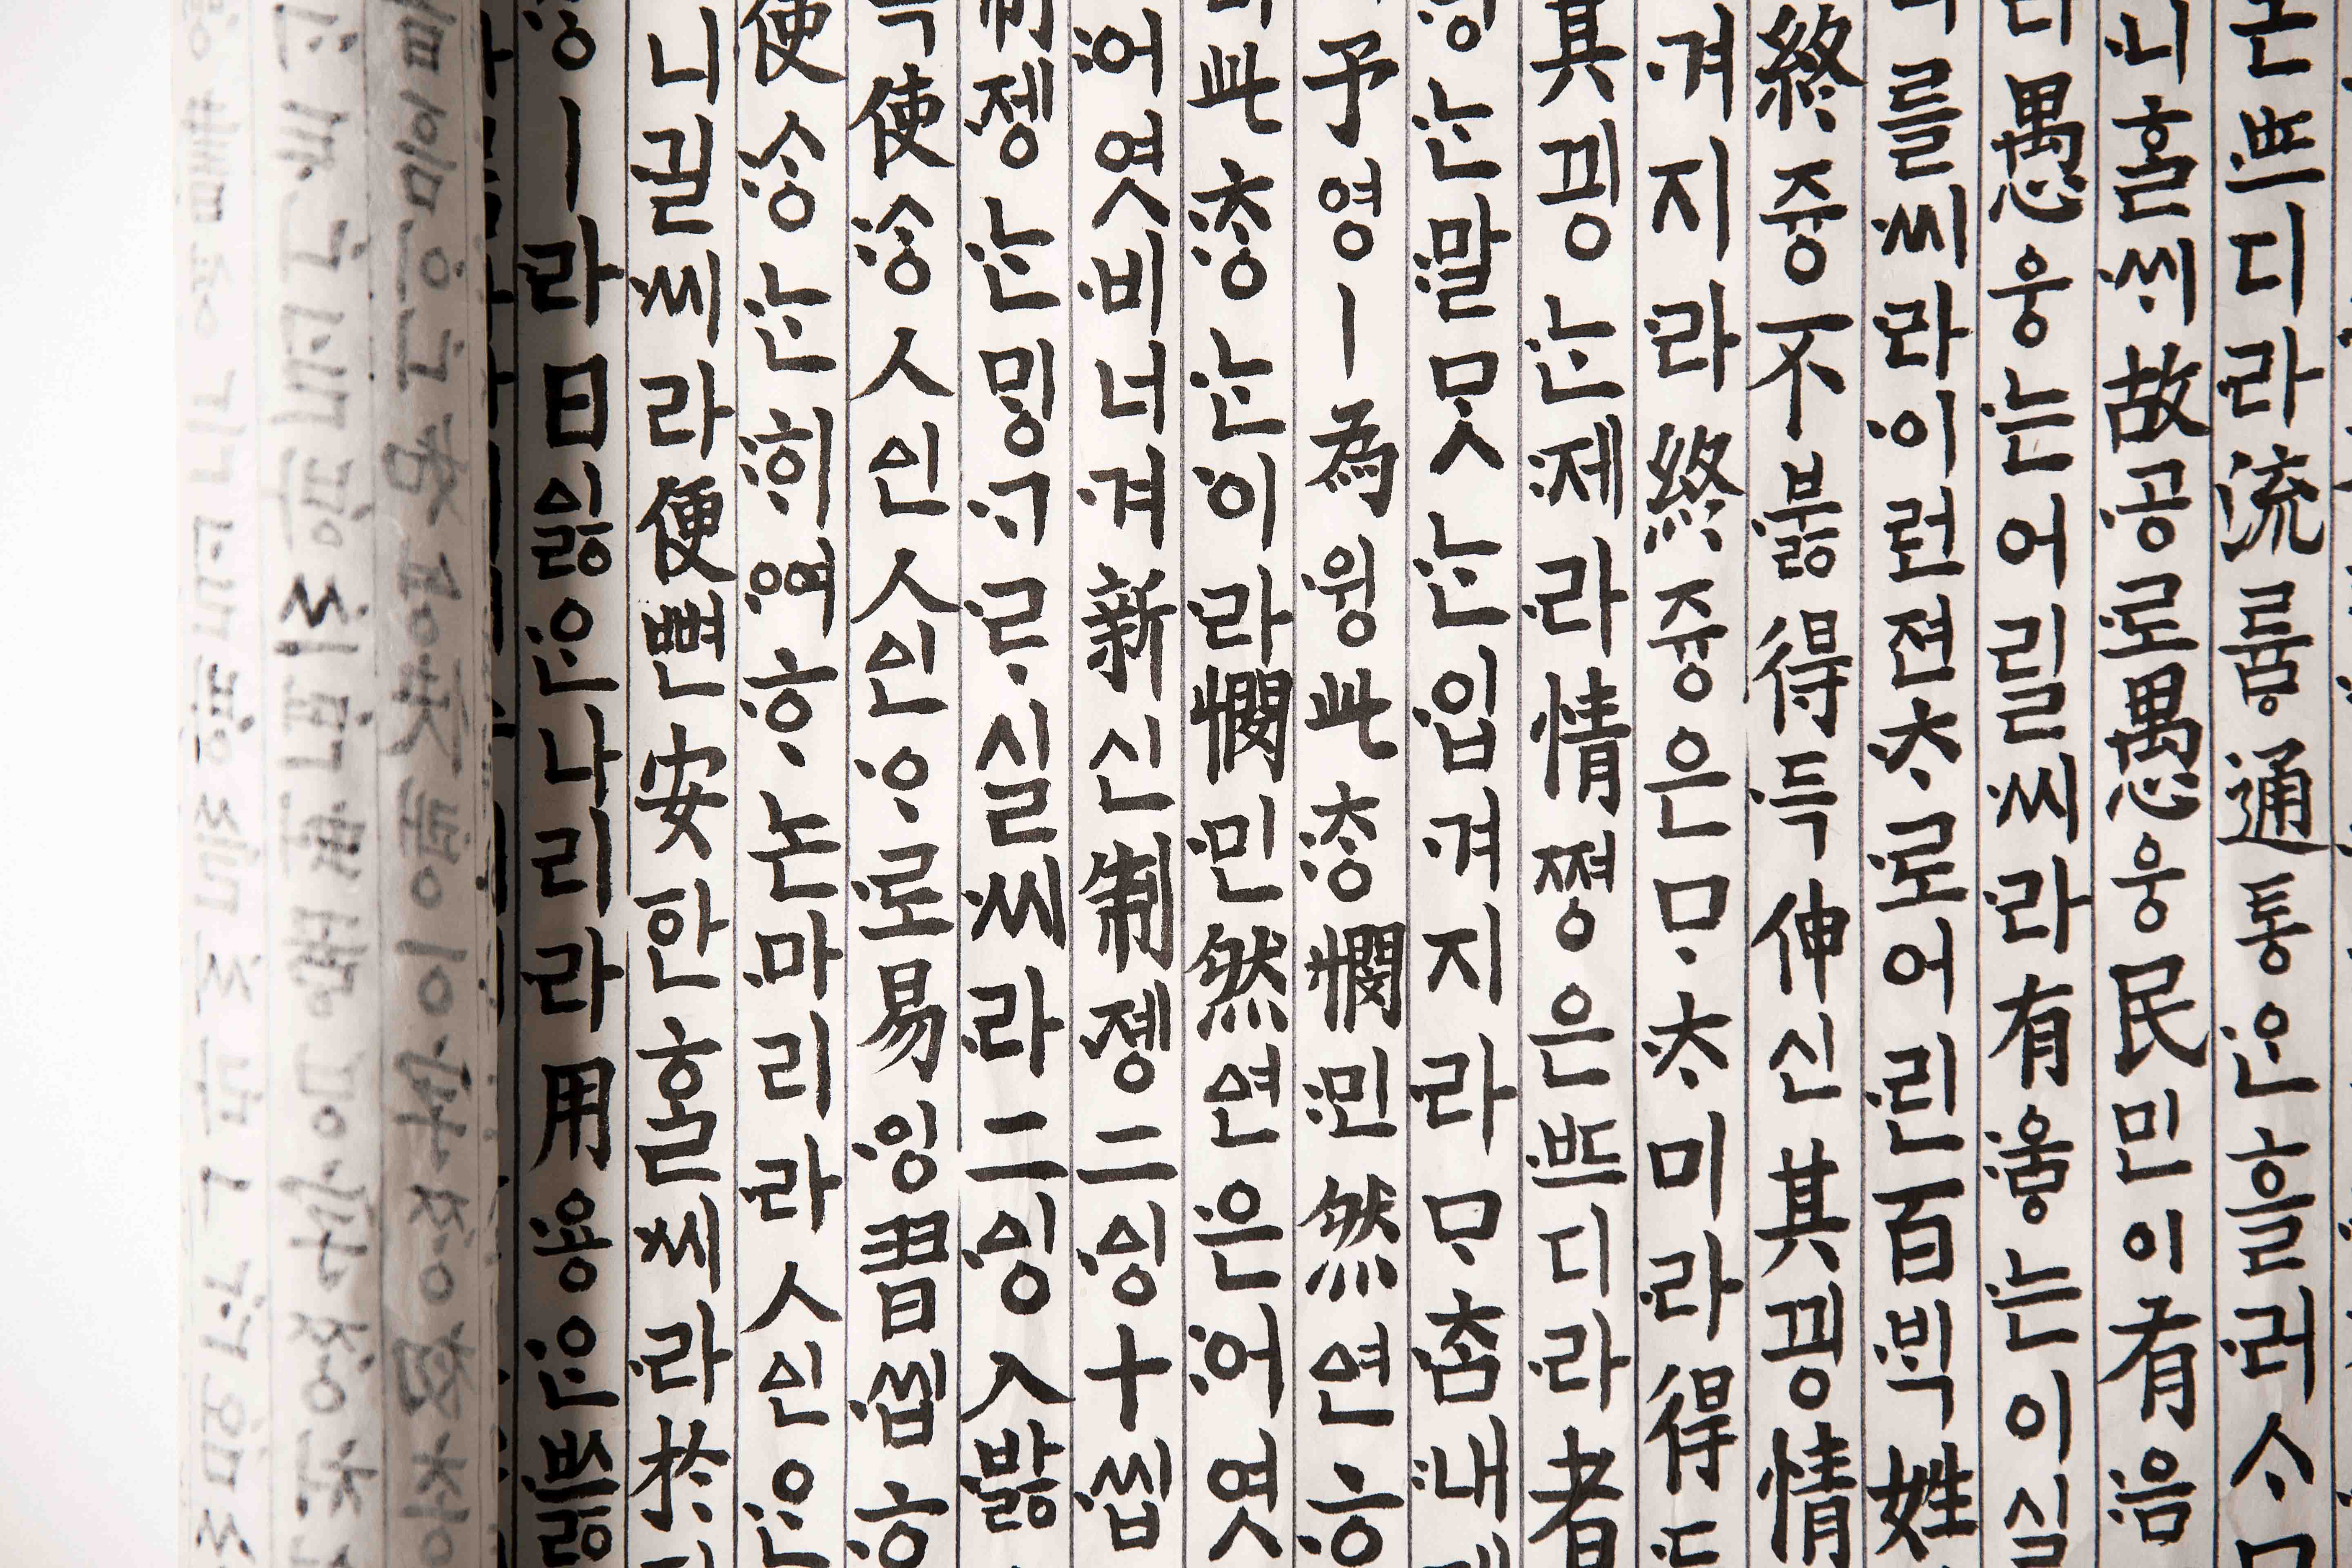 논ᄠᅳ디라流륳通통ᄋᆞᆫ흘러ᄉᆞ
니ᄒᆞᆯᄊᆡ故공로愚웅民민이有
愚웅는어릴씨라有우ᇢ는이실
를씨라이런젼ᄎᆞ로어린百ᄇᆡᆨ姓
終즁不부ᇙ得득伸신其끵情
겨지라終즁은ᄆᆞᄎᆞ미라得
其끵ᄂᆞᆫ제라情쪙은ᄠᅳ디라者
ᄂᆞᆫ말ᄆᆞᆺᄂᆞᆫ입겨지라ᄆᆞᄎᆞᆷ내
予영ㅣ為윙此ᄎᆞᆼ憫민然연ᄒᆞ
此ᄎᆞᆼᄂᆞᆫ이라憫민然연은어엿
어엿비너겨新신制젱二ᅀᅵᆼ十씹
젱ᄂᆞᆫᄆᆡᇰᄀᆞᄅᆞ실씨라二ᅀᅵᆼ八바ᇙ
使ᄉᆞᆼ人ᅀᅵᆫ人ᅀᅵᆫᄋᆞ로易잉習씹ᄒᆞ
使ᄉᆞᆼᄂᆞᆫᄒᆡᅇᅧᄒᆞ논마리라人ᅀᅵᆫᄋᆞᆫ
니길씨라便뼌安한ᄒᆞᆯ씨라於
ㅣ라日ᅀᅵᇙᄋᆞᆫ나리라用용ᄋᆞᆫ